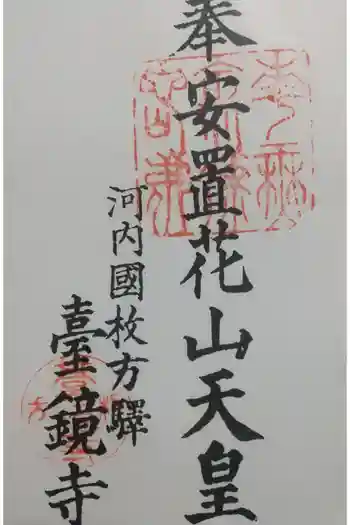 奉安置花山天皇
河内國枚方驛
臺鏡寺